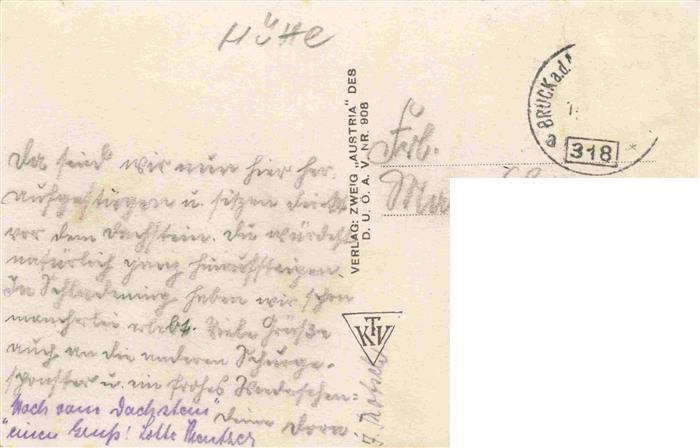 Hütte
Da sind wir nun hier her-
aufgestiegen u. sitzen direkt
vor dem Dachstein. Du würdest
natürlich ganz hinaufsteigen.
In Schladming haben wir schon
mancherlei erlebt. Viele Grüße
auch an die anderen
u. ein frohes
Deine Dora
Noch vom Dachstein
einen Gruß! Lotte
VERLAG: ZWEIG „AUSTRIA" DES
D. U. Ö. A. V. NR. 908
KTV
BRUCK a.d.
a 318 *
Frl.